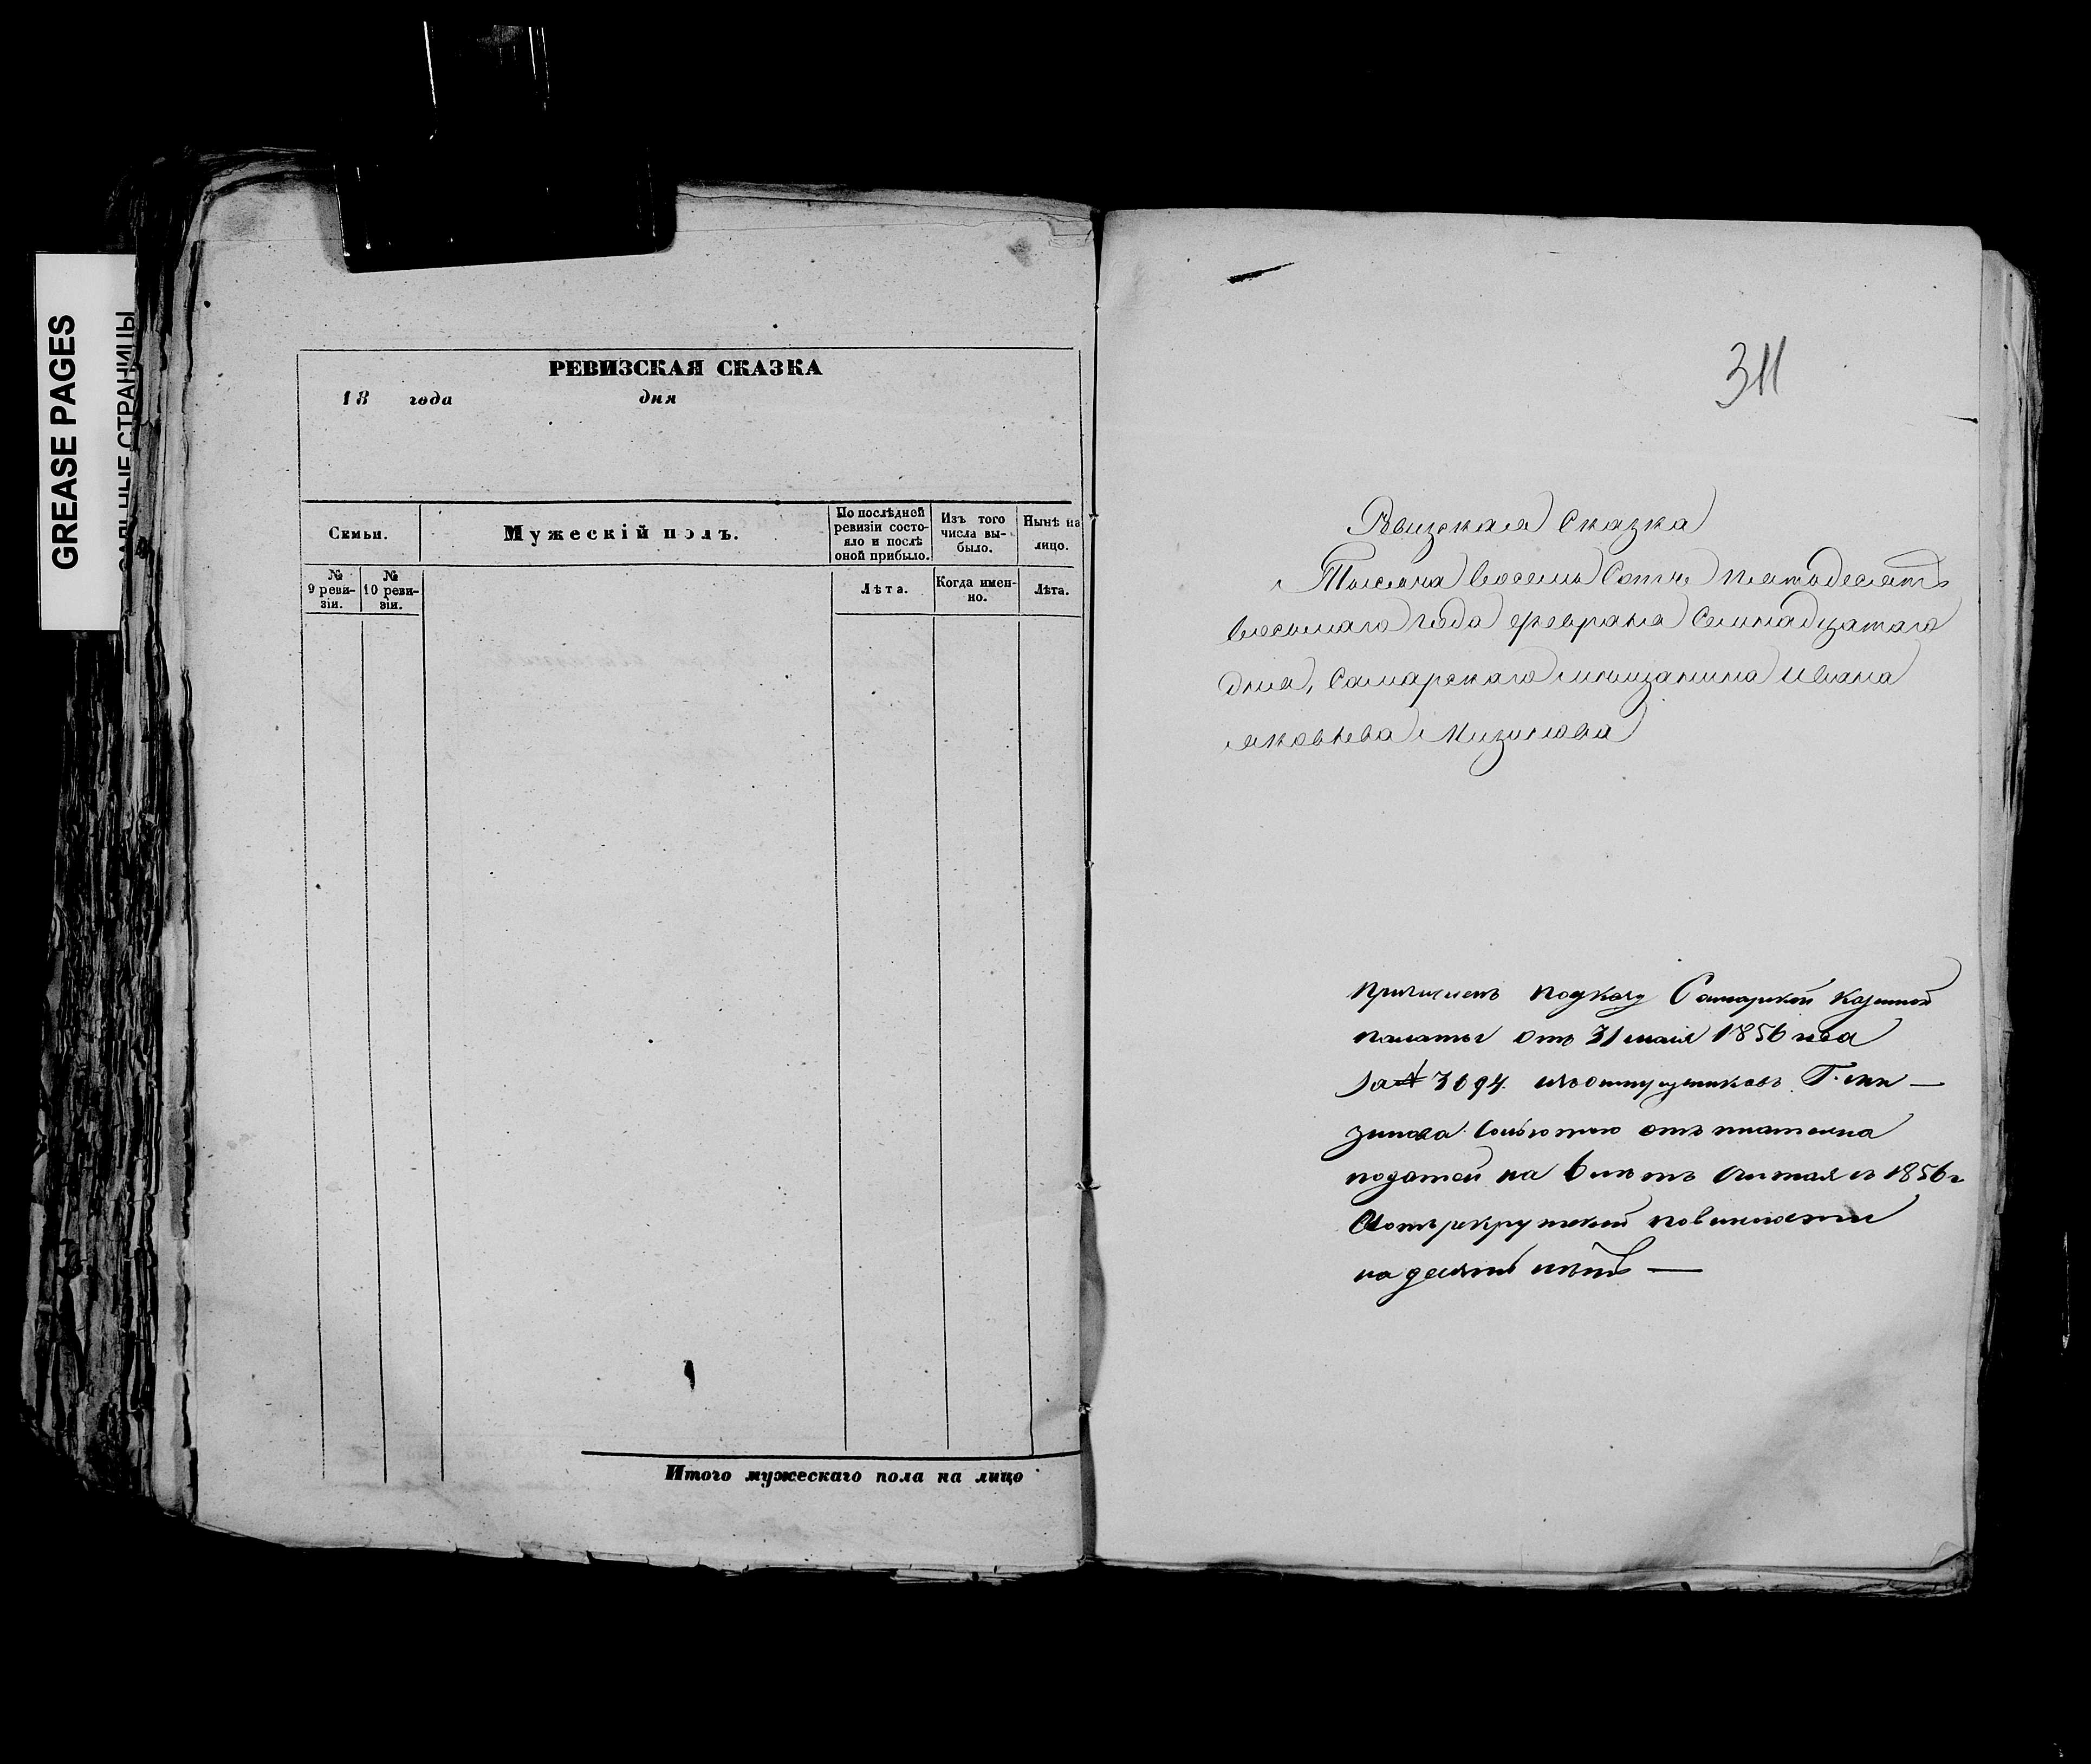 GREASE PAGES
САЛЬНЫЕ СТРАНИЦЫ
РЕВИЗСКАЯ СКАЗКА
18 года дня
Семьи.
Мужескій полъ.
По послѣдней
ревизіи состо-
яло и послѣ
оной прибыло.
Изъ того
числа вы-
было.
Нынѣ на
лицо.
№
9 реви-
зіи.
№
10 реви-
зіи.
Лѣта.
Когда имен-
но.
Лѣта.
Итого мужескаго пола на лицо
311
Рвизская Сказка
Тысяча восемь Сотъ пятодесятъ
восьмаго года февраля Семнадцатаго
дня, Самарскаго мѣщанина Ивана
яковлева Мизинова
причисленъ поуказу Самарской казенной
палаты отъ 31 маія 1856 года
за № 3694 изъ отпущенниковъ Г. Ми —
зинова сольготою отъ платежа
податей на 6 лѣтъ считая съ 1856 г
Аотъ рекрутской повинности
на десять лѣтъ —